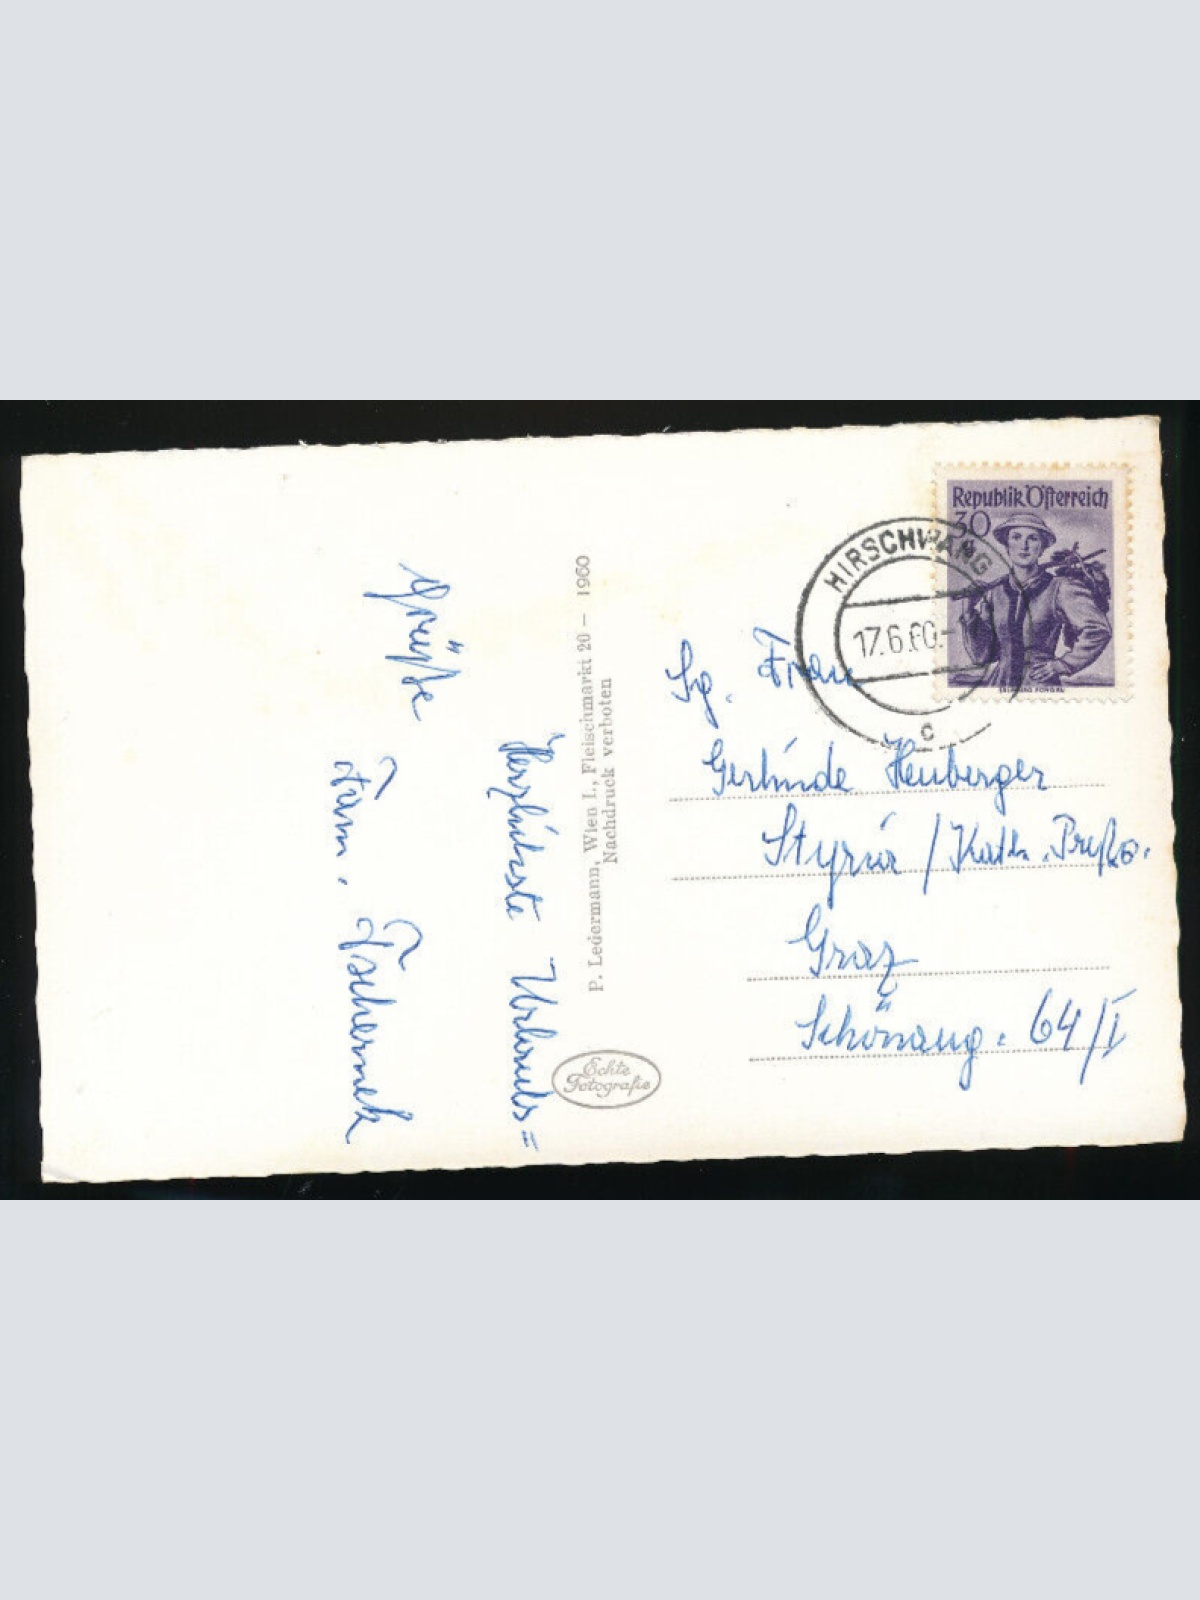 Herzlichste Urlaubs=
Grüße
Fam. Tschernek
P. Ledermann, Wien I., Fleischmarkt 20 — 1960
Nachdruck verboten
Echte
Fotografie
Republik Österreich
30
g
HIRSCHWANG
17.6.60.-
c
Sg. Frau
Gerlinde Heuberger
Styria / Kath.
Graz
Schönaug. 64/I